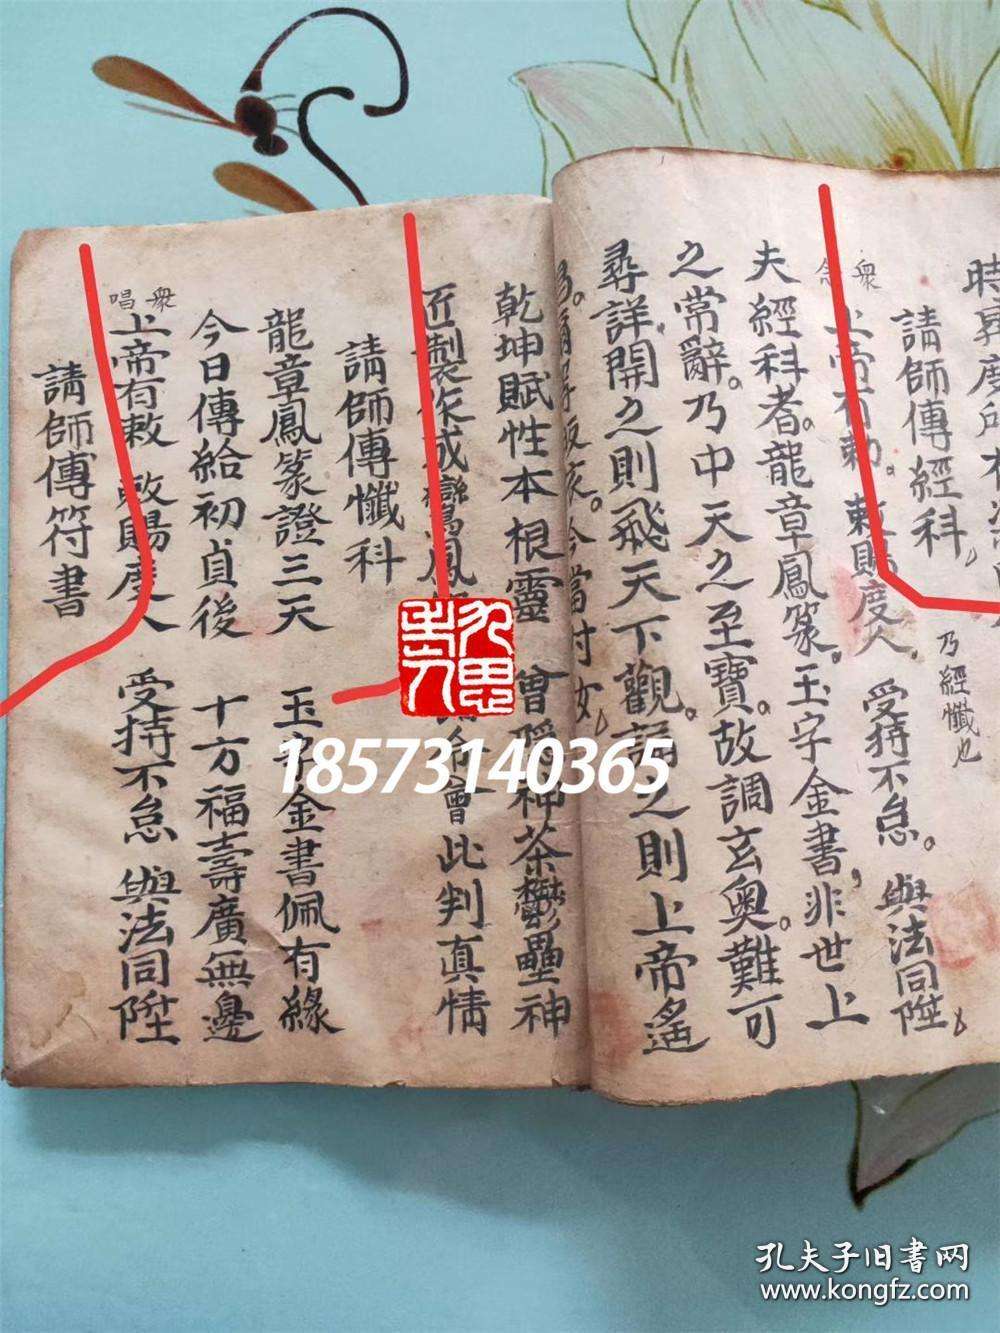 時
請師傳經科
乃經懺也
衆
上帝有勅。敕賜度人。 受持不怠。 與法同陞
夫經科者。龍章鳳篆。玉字金書，非世上
之常辭。乃中天之至寶。故調玄奧。難可
尋詳。開之則飛天下觀。誦之則上帝遙
今當付汝
乾坤賦性本根靈 曾 神茶鬱壘神
匠製作成鸞鳳 會此判真情
請師傳懺科
龍章鳳篆證三天 玉字金書佩有緣
今日傳給初貞後 十方福壽廣無邊
衆唱
上帝有敕 敕賜度人 受持不怠 與法同陞
請師傳符書
18573140365
孔夫子旧書网
www.kongfz.com